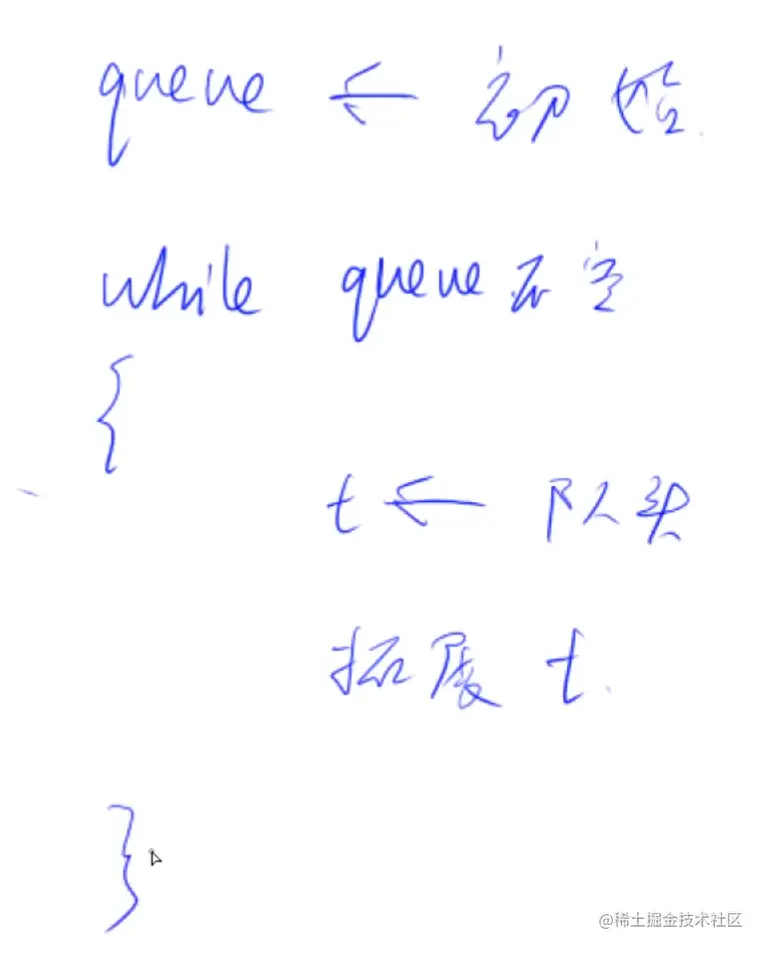 queue ← 初始
while queue 不空
{
t ← 队头
拓展 t
}
@稀土掘金技术社区